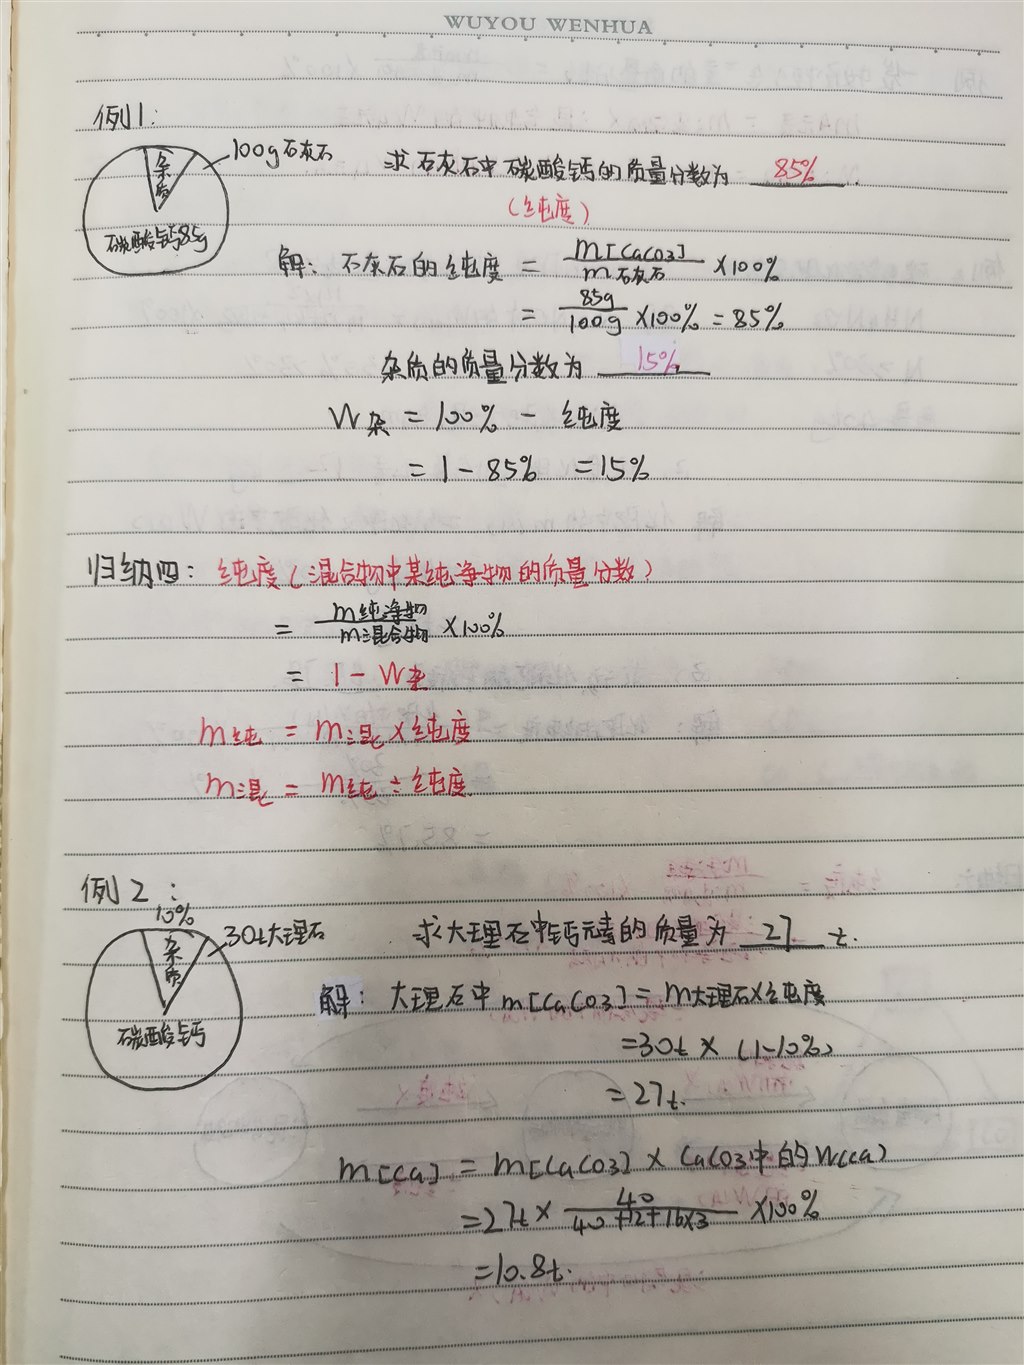 WUYOU WENHUA
例1:
杂质
100g石灰石
碳酸钙85g
求石灰石中碳酸钙的质量分数为 85%.
(纯度)
解: 石灰石的纯度 = m[CaCO3]/m石灰石 ×100%
= 85g/100g ×100% = 85%
杂质的质量分数为 15%.
W杂 = 100% - 纯度
= 1 - 85% = 15%
归纳四: 纯度(混合物中某纯净物的质量分数)
= m纯净物/m混合物 ×100%
= 1 - W杂
m纯 = m混×纯度
m混 = m纯÷纯度
例2:
10%
杂质
30t大理石
碳酸钙
求大理石中钙元素的质量为 27 t.
解: 大理石中m[CaCO3] = m大理石×纯度
=30t × (1-10%)
=27t.
m[Ca] = m[CaCO3] × CaCO3中的W(Ca)
=27t × 40/40+12+16×3 ×100%
=10.8t.